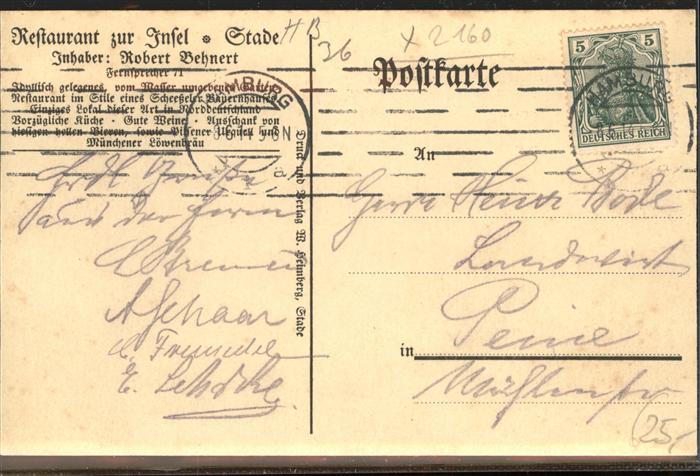 Restaurant zur Insel * Stade
Inhaber: Robert Behnert
Fernsprecher 71
Idyllisch gelegenes, vom Wasser umgebenes Garten-
Restaurant im Stile eines Scheeseler Bauernhauses
Einziges Lokal dieser Art in Norddeutschland
Vorzügliche Küche - Gute Weine - Ausschank von
hiesigen hellen Bieren, sowie Pilsner Urquell und
Münchener Löwenbräu
HB
36
x 2160
Postkarte
5 5
DEUTSCHES REICH
HAMBURG
5-6 N
An
Druck und Verlag W. Heimberg, Stade
Grüße
aus der Ferne
A Schaar
Herrn Heinr. Bode
Landwirt
in Peine
Mühlenstr
25,-